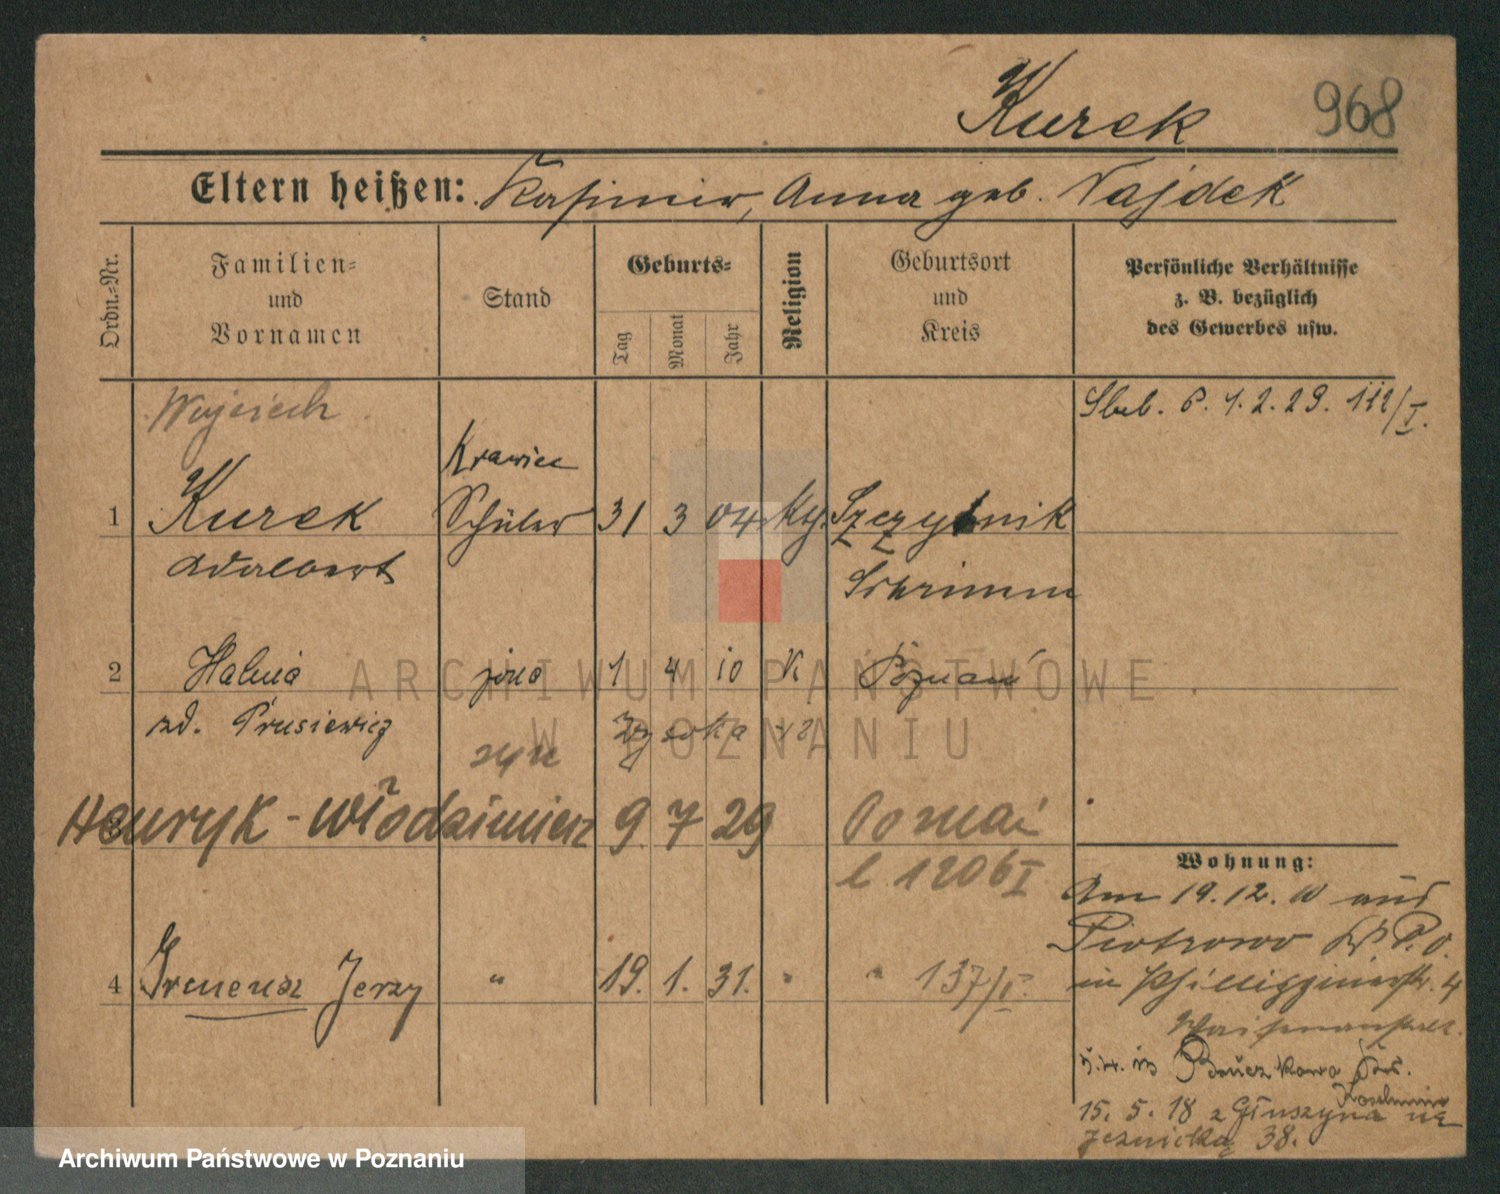 Kurek 968
Eltern heißen: Kasimir, Anna geb. Najdek
Ordn.-Nr.
Familien-
und
Vornamen
Stand
Geburts-
Tag
Monat
Jahr
Religion
Geburtsort
und
Kreis
Persönliche Verhältnisse
z. B. bezüglich
des Gewerbes usw.
Wojciech
Krawiec
1 Kurek Schüler 31 3 04 Kth. Szczytnik
Adalbert
Schrimm
2 Halina żona 1 4 10 K Poznań
zd. Prusiewicz
syn
3 Henryk-Włodzimierz 9. 7 29
l 1206 I
4 Ireneusz Jerzy " 19. 1. 31. " " 137/I.
P. 1.2.29. 112/I.
Wohnung:
Am 19.12. 10 aus
Piotrowo Kr. P. O.
in 4
15. 5. 18 z Głuszyna na
38.
ARCHIWUM PAŃSTWOWE
W POZNANIU
Archiwum Państwowe w Poznaniu